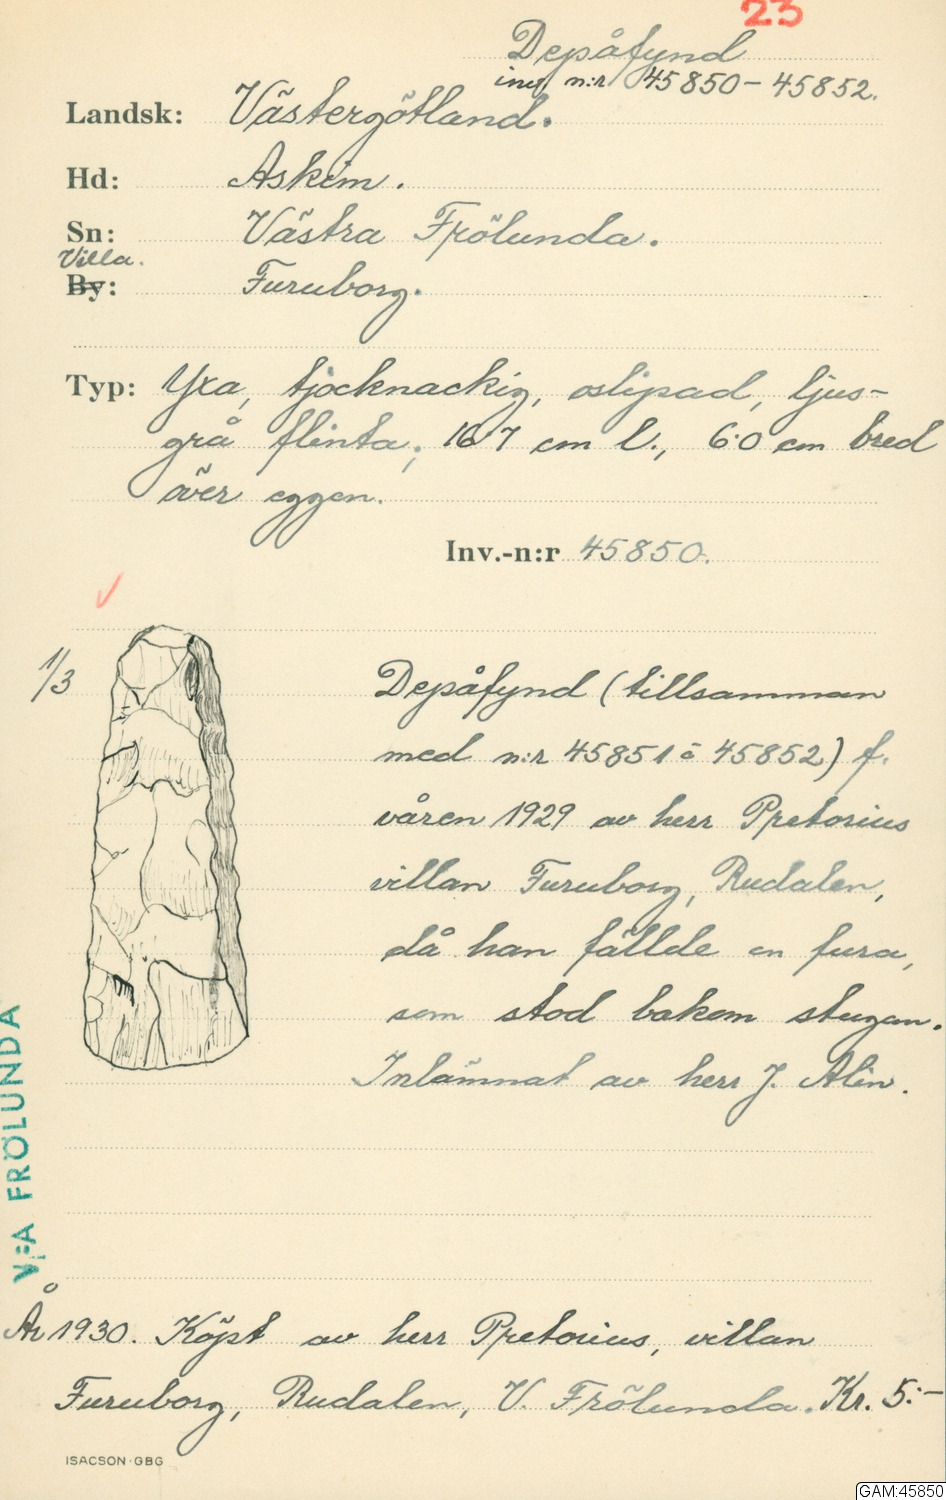 23
Depåfynd
inv n:r 45850-45852.
Landsk: Västergötland.
Hd: Askim.
Sn: Västra Frölunda.
Villa.
By: Furuborg.
Typ: Yxa, tjocknackig, oslipad, ljus-
grå flinta; 16·7 cm l., 6·0 cm bred
över eggen.
Inv.-n:r 45850.
1/3
Depåfynd (tillsamman
med n:r 45851 o 45852) f.
våren 1929 av herr Pretorius
villan Furuborg, Rudalen,
då han fällde en fura,
som stod bakom stugan.
Inlämnat av herr J. Alin.
V:A FRÖLUNDA
År 1930. Köpt av herr Pretorius, villan
Furuborg, Rudalen, V. Frölunda. Kr. 5:-
ISACSON·GBG
GAM:45850